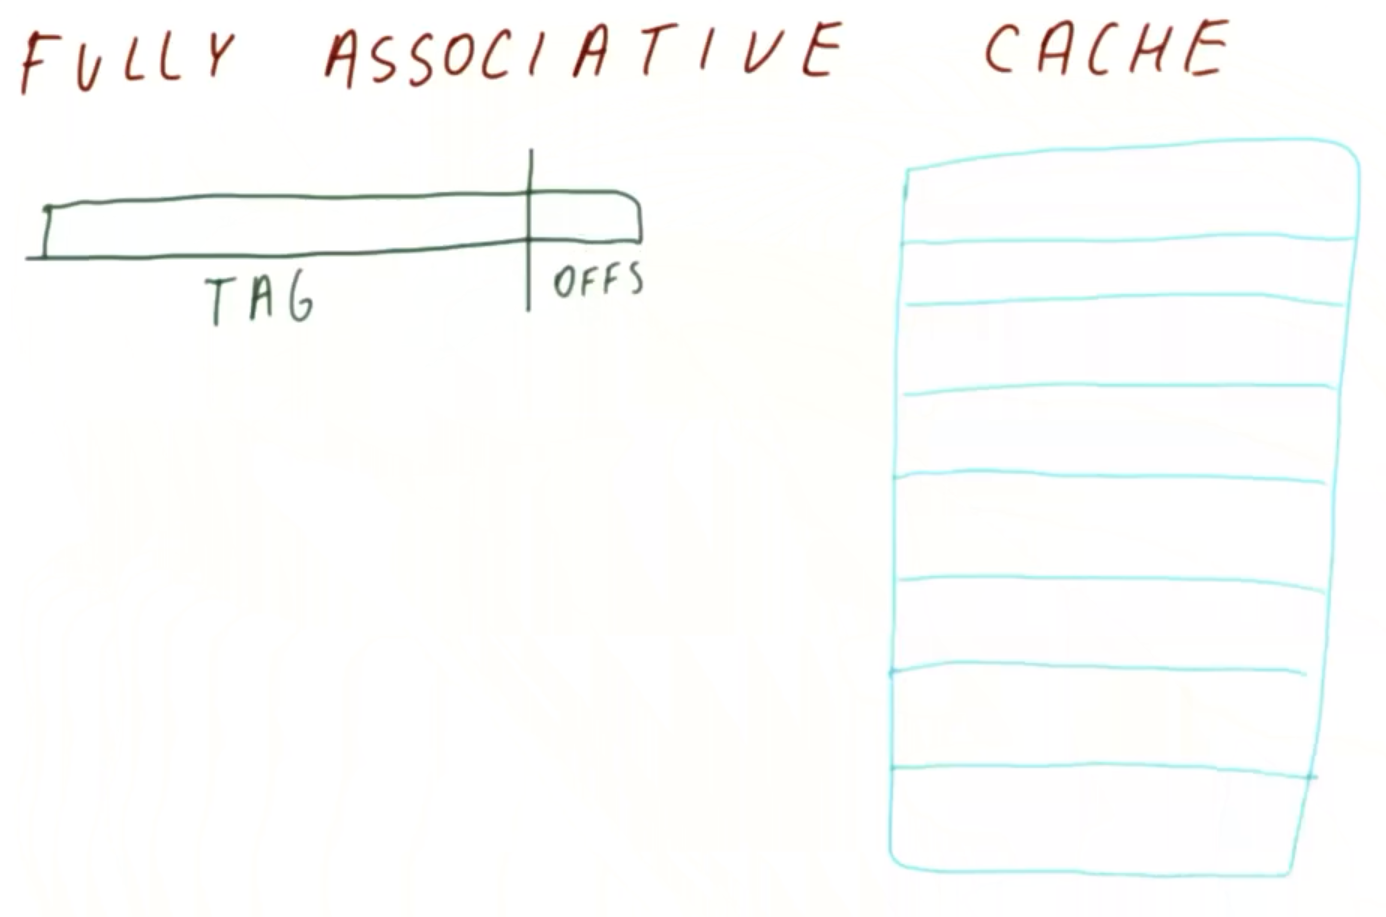 FULLY ASSOCIATIVE CACHE
TAG
OFFS